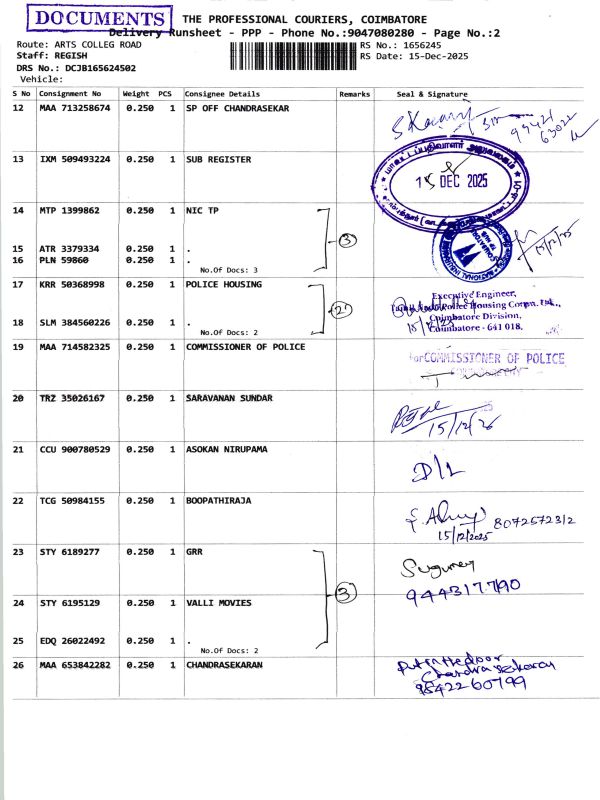 DOCUMENTS
THE PROFESSIONAL COURIERS, COIMBATORE
Delivery Runsheet - PPP - Phone No.:9047080280 - Page No.:2
Route: ARTS COLLEG ROAD
RS No.: 1656245
Staff: REGISH
RS Date: 15-Dec-2025
DRS No.: DCJB165624502
Vehicle:
S No Consignment No Weight PCS Consignee Details Remarks Seal & Signature
12 MAA 713258674 0.250 1 SP OFF CHANDRASEKAR
13 IXM 509493224 0.250 1 SUB REGISTER
மாவட்டப்பதிவாளர் அலுவலகம்
15 DEC 2025
14 MTP 1399862 0.250 1 NIC TP
3
15/12/25
15 ATR 3379334 0.250 1 .
16 PLN 59860 0.250 1 .
No.Of Docs: 3
17 KRR 50368998 0.250 1 POLICE HOUSING
2
Executive Engineer,
Tamil Nadu Police Housing Corpn. Ltd.,
Coimbatore Division,
Coimbatore - 641 018.
18 SLM 384560226 0.250 1 .
No.Of Docs: 2
19 MAA 714582325 0.250 1 COMMISSIONER OF POLICE
For COMMISSIONER OF POLICE
20 TRZ 35026167 0.250 1 SARAVANAN SUNDAR
15/12/25
21 CCU 900780529 0.250 1 ASOKAN NIRUPAMA
D/L
22 TCG 50984155 0.250 1 BOOPATHIRAJA
8072572312
15/12/2025
23 STY 6189277 0.250 1 GRR
3
944317790
24 STY 6195129 0.250 1 VALLI MOVIES
25 EDQ 26022492 0.250 1 .
No.Of Docs: 2
26 MAA 653842282 0.250 1 CHANDRASEKARAN
Chandrasekaran
9842260799